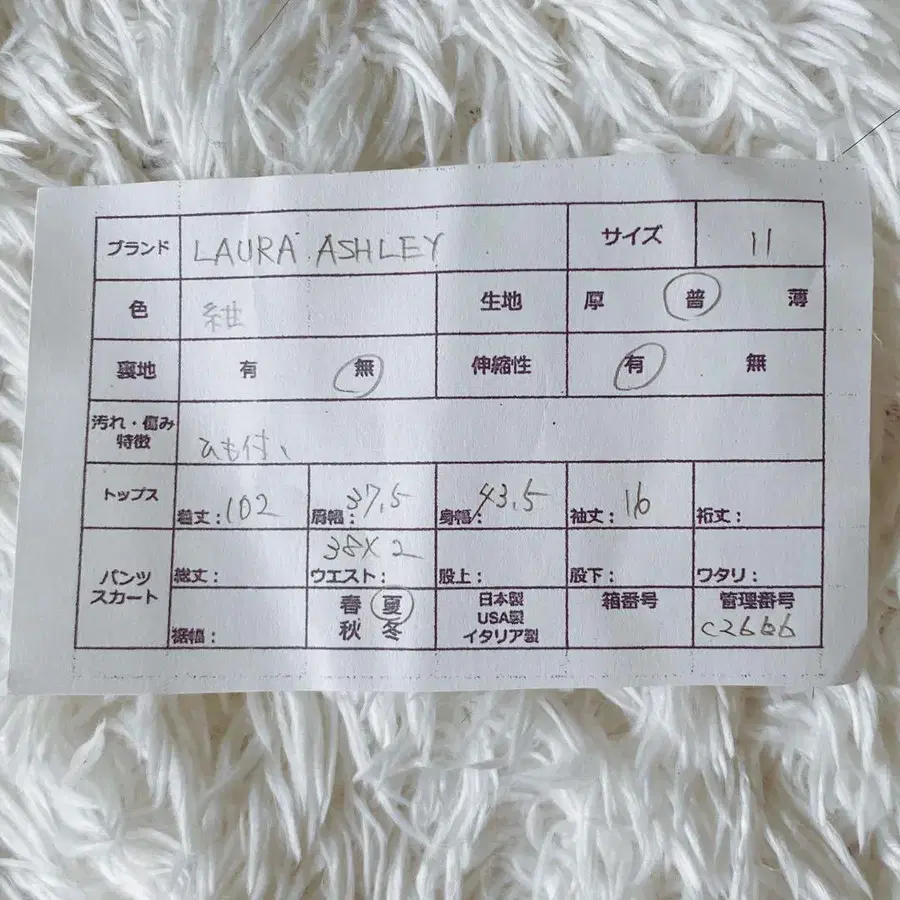 ブランド LAURA ASHLEY サイズ 11
色 紺 生地 厚 普 薄
裏地 有 無 伸縮性 有 無
汚れ・傷み
特徴 ひも付、
トップス 着丈:102 肩幅:37.5 身幅:43.5 袖丈:16 裄丈:
パンツ
スカート 総丈: ウエスト:38×2 股上: 股下: ワタリ:
裾幅: 春 夏
秋 冬
日本製
USA製
イタリア製
箱番号
管理番号
C2666